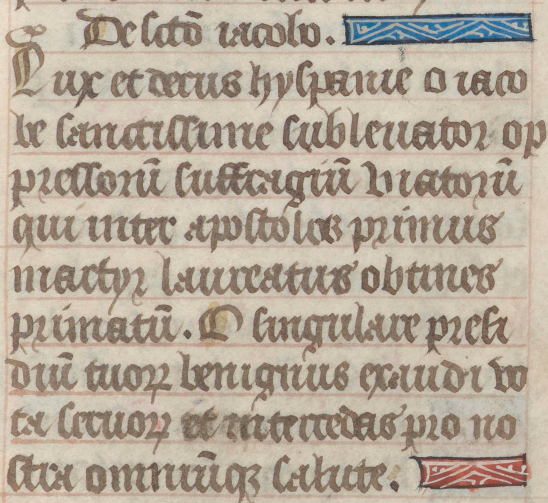 De scto iacobo.
Lux et decus hyspanie o iaco
be sanctissime subleuator op
pressorū suffragiū viatorū
qui inter apostolos primus
martyr laureatus obtines
primatū. O singulare presi
diū tuoꝝ benignius exaudi vo
ta seruoꝝ et intercedas pro no
stra omniūqꝫ salute.